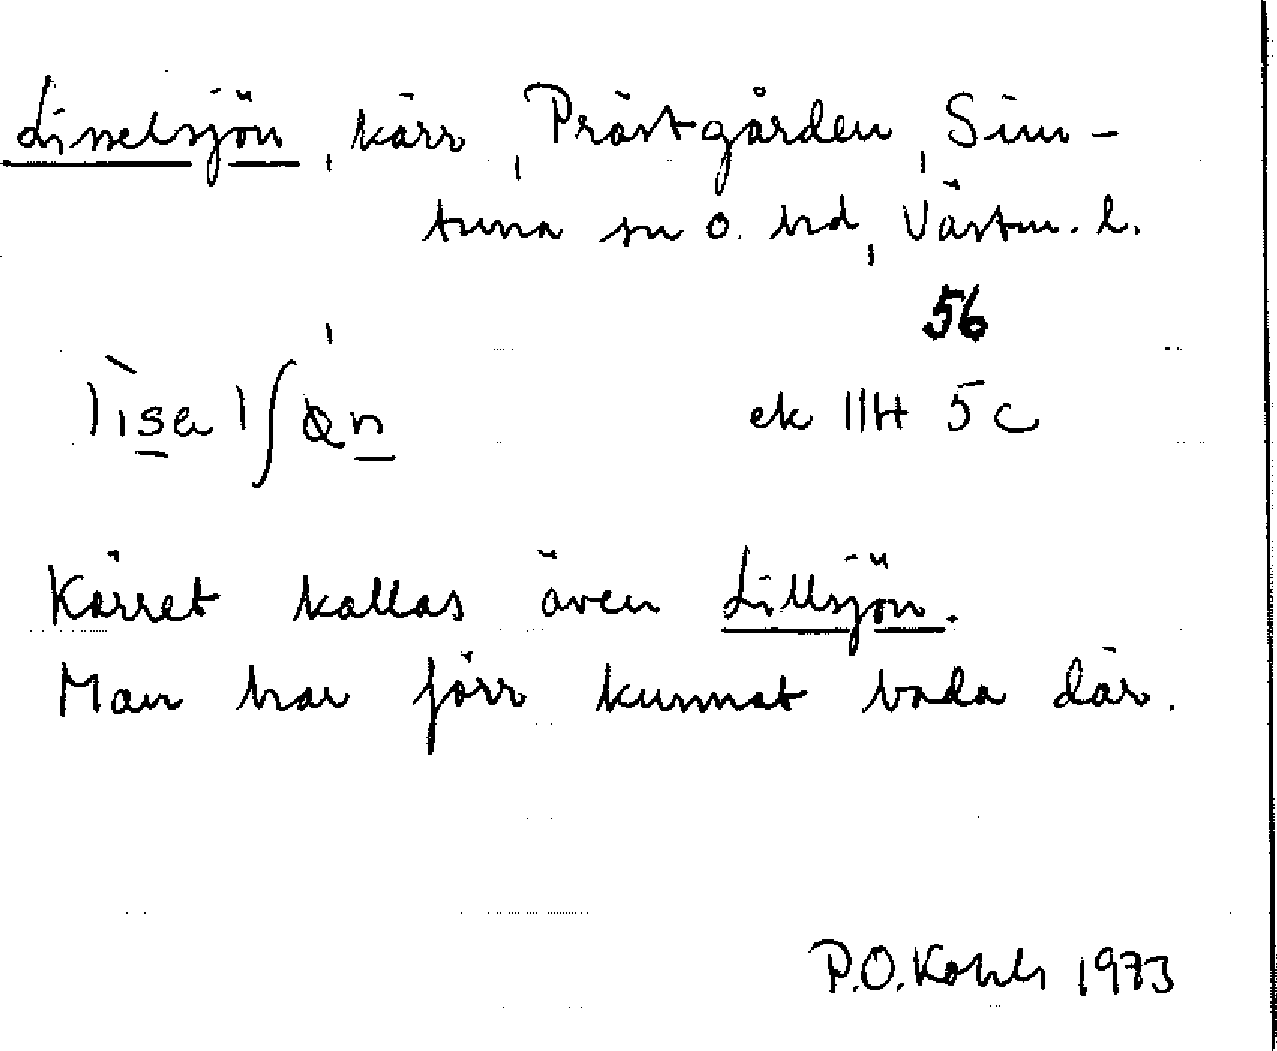 Lisselsjön, kärr, Prästgården, Sim-
tuna sn o. hrd, Västm. l.
56
ek 11H 5c
Kärret kallas även Lillsjön.
Man har förr kunnat bada där.
P.O. Kohls 1973